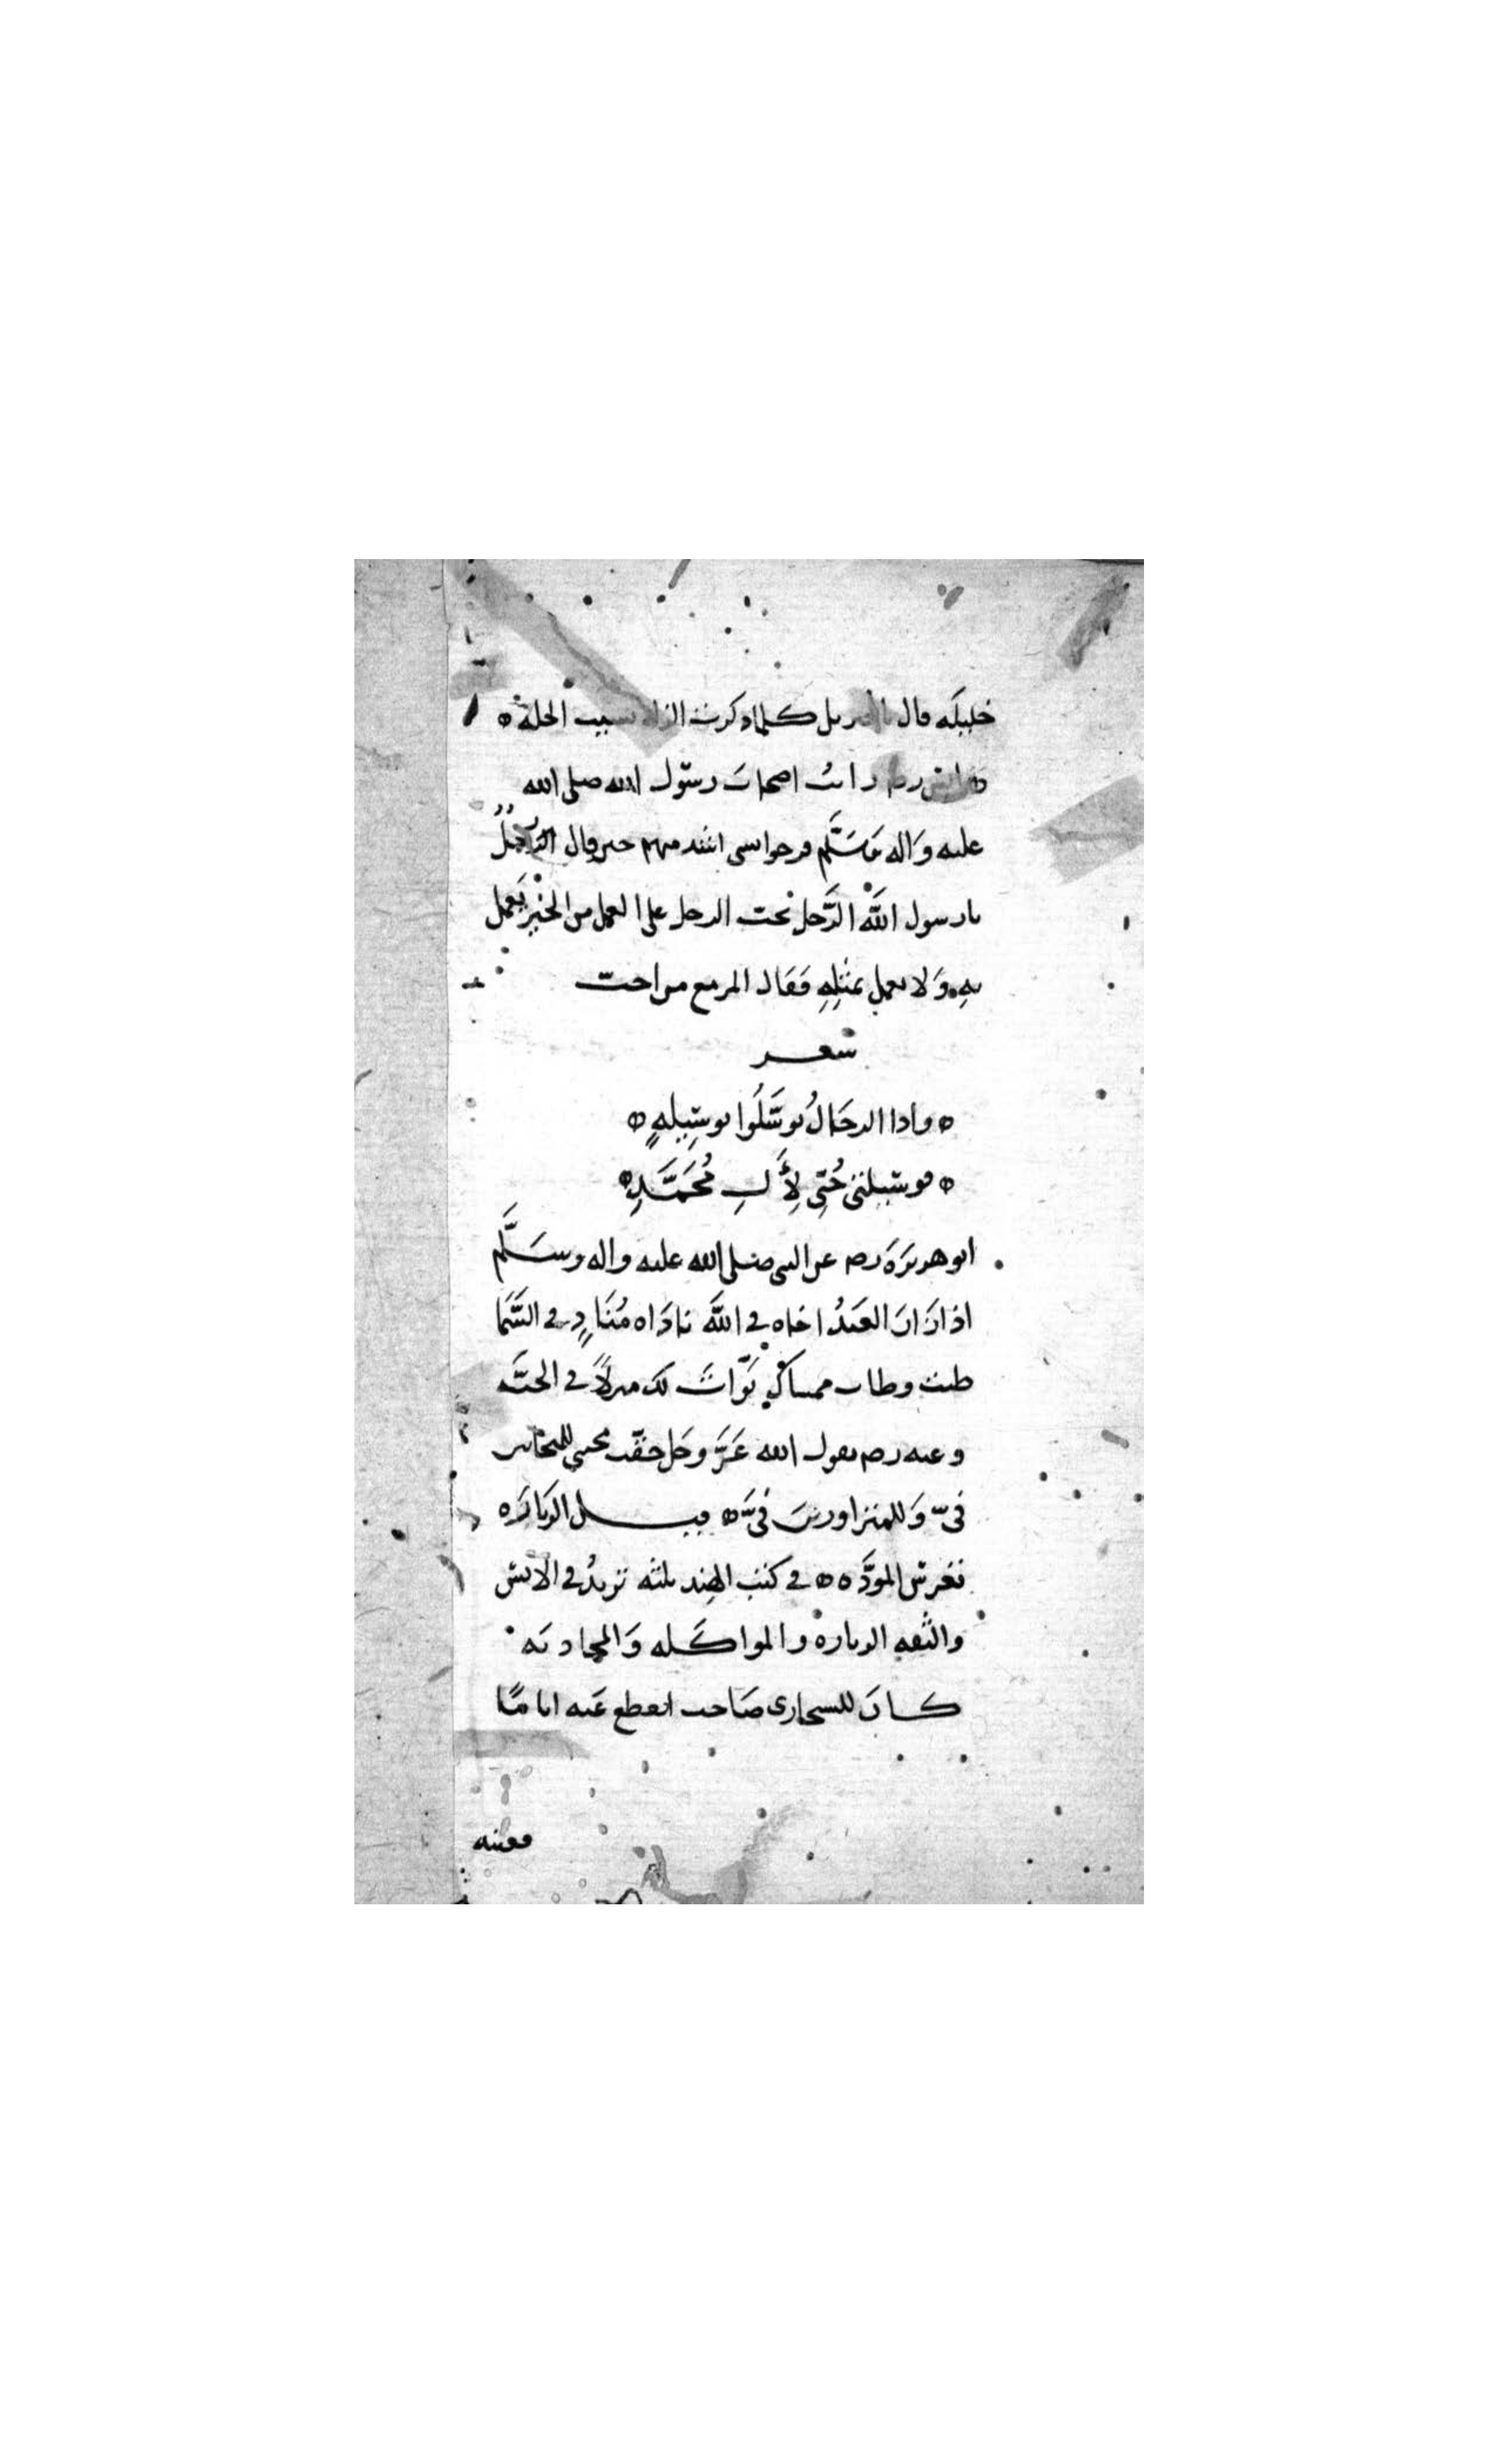 خليله قال يا جبريل كلما ذكرت الزلة نسيت الخلة ه
ه انس رضه رايت اصحاب رسول الله صلى الله
عليه واله وسلم فرحوا بشي اشد منهم حين قال الرجل
يا رسول الله الرجل يحب الرجل على العمل من الخير يعمل
به ولا يعمل بمثله فقال المرء مع من احب
شعر
ه واذا الرجال توسلوا بوسيلة ه
ه فوسيلتي حبي لآل محمد ه
ابو هريرة رضه عن النبي صلى الله عليه واله وسلم
اذا زار العبد اخاه في الله ناداه مناد في السما
طبت وطاب ممساك تبوات لك منزلا في الجنه
وعنه رضه يقول الله عز وجل حقت محبتي للمتحابين
فيّ وللمتزاورين فيّ ه قيل الزيارة
تغرس المودة ه ه في كتب الهند ثلثه تزيد في الانس
والثقه الزيارة والمواكله والمحادثه
كان للسحاري صاحب انقطع عنه اياما